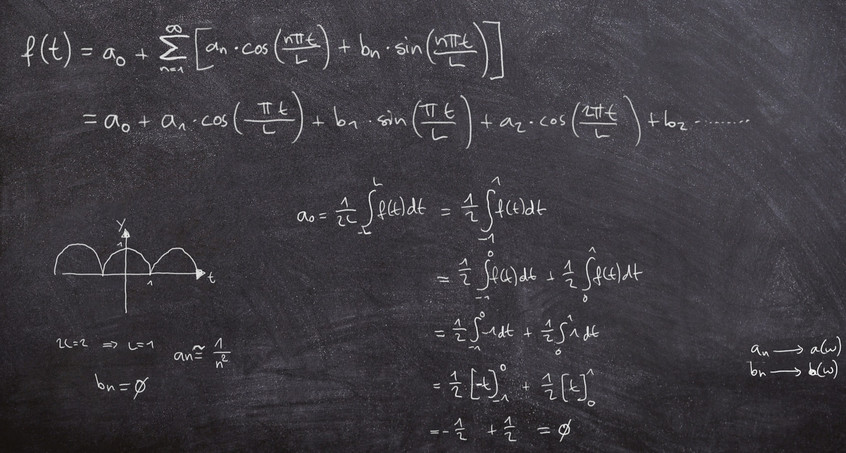 f(t) = a₀ + ∑ₙ₌₁^∞ [aₙ·cos(nπt/L) + bₙ·sin(nπt/L)]
= a₀ + a₁·cos(πt/L) + b₁·sin(πt/L) + a₂·cos(2πt/L) + b₂........
a₀ = 1/2L ∫₋L^L f(t)dt = 1/2 ∫₋₁^1 f(t)dt
= 1/2 ∫₋₁^0 f(t)dt + 1/2 ∫₀^1 f(t)dt
= 1/2 ∫₋₁^0 -1dt + 1/2 ∫₀^1 1dt
= 1/2 [-t]₋₁^0 + 1/2 [t]₀^1
= -1/2 + 1/2 = ∅
y
1
t
1
2L=2 ⇒ L=1
aₙ ≅ 1/n²
bₙ = ∅
aₙ → a(ω)
bₙ → b(ω)